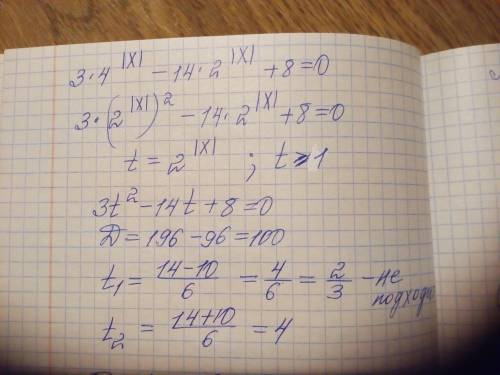 3·4^|X| − 14·2^|X| + 8 = 0
3·(2^|X|)^2 − 14·2^|X| + 8 = 0
t = 2^|X| ; t ⩾ 1
3t^2 − 14t + 8 = 0
D = 196 − 96 = 100
t₁ = (14−10)/6 = 4/6 = 2/3 − не
t₂ = (14+10)/6 = 4